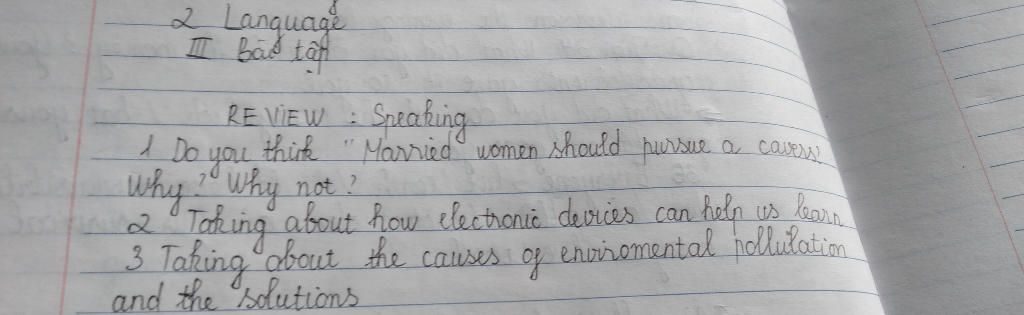 2 Language
III Bài tập
REVIEW : Speaking
1 Do you think "Married women should pursue a caverss"
Why? Why not?
2 Taking about how electronic devices can help us learn
3 Taking about the causes of enviromental pollutation
and the solutions